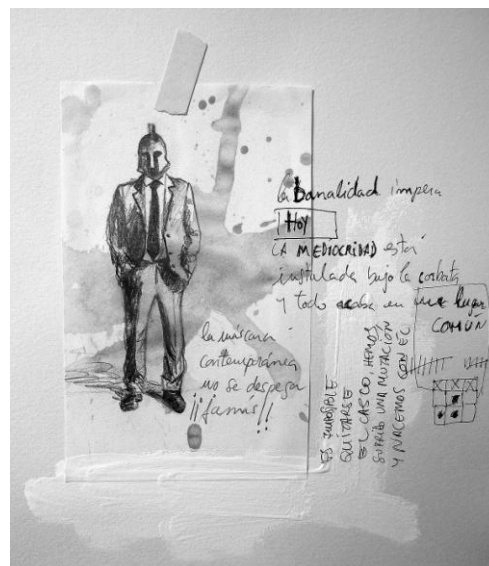 la banalidad impera
Hoy
LA MEDIOCRIDAD está
instalada bajo la corbata
y todo acaba en un lugar
COMÚN
la máscara
contemporánea
no se despega
¡¡jamás!!
ES IMPOSIBLE
QUITARSE
EL CASCO, HEMOS
SUFRIDO UNA MUTACIÓN
Y NACEMOS CON ÉL